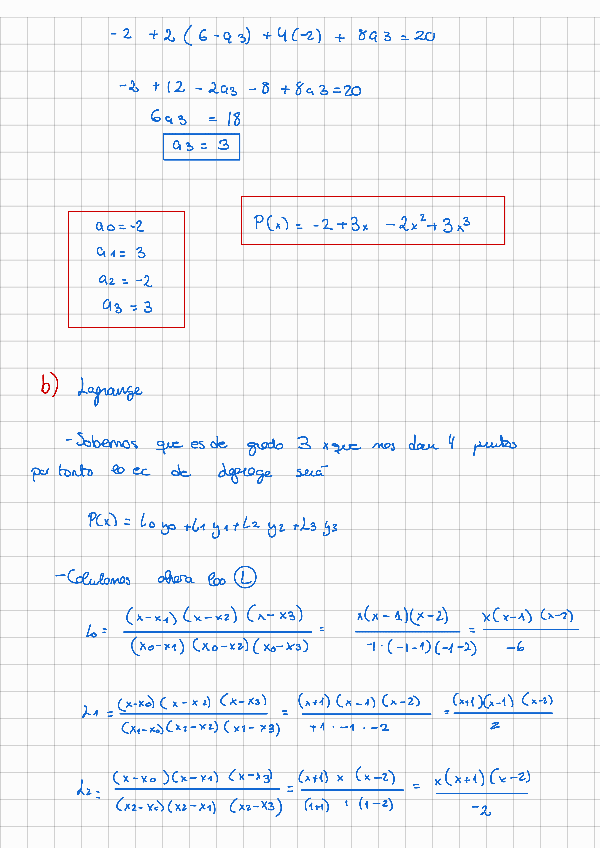 -2 +2 (6-a3) +4(-2) + 8a3 = 20
-2 +12 - 2a3 -8 +8a3=20
6a3 = 18
a3 = 3
a0=-2
a1= 3
a2 = -2
a3 = 3
P(x) = -2+3x -2x²+3x³
b) Lagrange
-Sabemos que es de grado 3 xque nos dan 4 puntos
por tanto la ec de será
P(x) = L0 y0 +L1 y1 +L2 y2 +L3 y3
-Calulamos ahora las L
L0 = (x-x1) (x-x2) (x-x3) / (x0-x1) (x0-x2) (x0-x3) = x(x-1)(x-2) / -1·(-1-1)(-1-2) = x(x-1) (x-2) / -6
L1 = (x-x0) (x-x2) (x-x3) / (x1-x0)(x1-x2) (x1-x3) = (x+1) (x-1) (x-2) / +1 · -1 · -2 = (x+1)(x-1) (x-2) / 2
L2 = (x-x0)(x-x1) (x-x3) / (x2-x0)(x2-x1) (x2-x3) = (x+1) x (x-2) / (1+1) · 1 (1-2) = x(x+1)(x-2) / -2